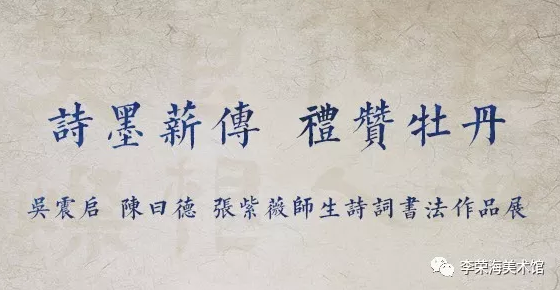 詩墨薪傳 禮贊牡丹
吳震启 陳曰德 張紫薇師生詩詞書法作品展
李荣海美术馆